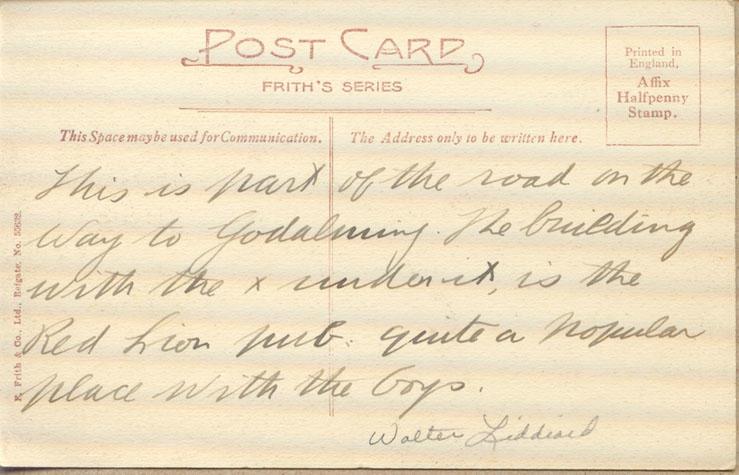 POST CARD
FRITH'S SERIES
Printed in
England.
Affix
Halfpenny
Stamp.
This Space may be used for Communication.
The Address only to be written here.
This is part of the road on the
way to Godalming. The building
with the x under it, is the
Red Lion pub. quite a popular
place with the boys.
Walter Liddiard
F. Frith & Co., Ltd., Reigate. No. 55632.